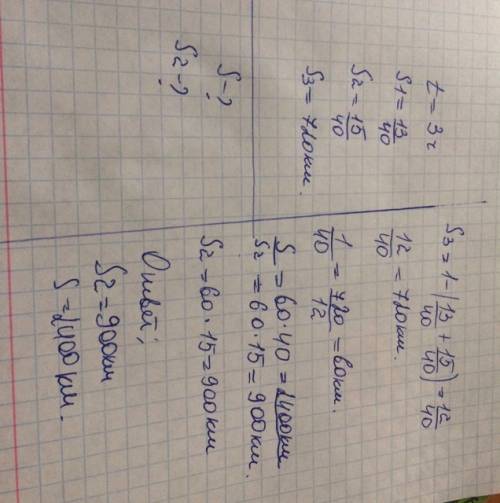 t = 3ч
S1 = 13/40
S2 = 15/40
S3 = 720 км.
S-?
S2-?
S3 = 1-(13/40 + 15/40) = 12/40
12/40 = 720 км.
1/40 = 720/12 = 60 км.
S = 60·40 = 2400 км
S2 = 60·15 = 900 км.
S2 = 60·15 = 900 км
Ответ;
S2 = 900 км
S = 2400 км.